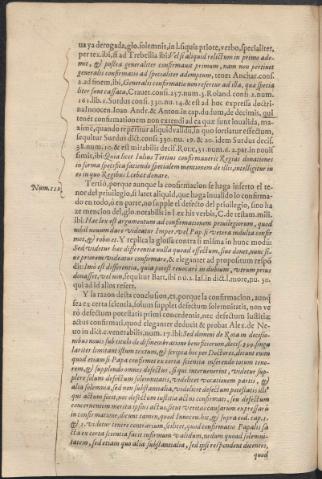 ua ya derogada, glo. solemnis, in l. si quis priore, verbo, specialiter,
per tex. ibi, si ad Trebellia. ibi: Vel si aliquid relictum in primo ade-
met, & postea generaliter confirmauit primum, nam non pertinet
generalis confirmatio ad specialiter ademptum, tenet Anchar. cons.
2. ad finem, ibi, Generalis confirmatio non refertur ad ista, quæ specia
liter sunt cassata, Crauet. cons. 237. num. 3. Roland. cons. 2. num.
161. lib. 1. Surdus cons. 330. nu. 14. & est ad hoc expressa doctri-
na Innocen. Ioan. Andr. & Anton. in cap. dudum, de decimis, qui
tenet confirmationem non extendi ad ea quæ sunt inualida, ma-
ximè, quando reperitur aliquid validũ, in quo sortiatur effectum,
sequitur Surdus dict. cons. 330. nu. 19. & 20. idem Surdus deci.
num. 10. & est mirabilis
simili, ibi: Quia licet Iulius Tertius confirmauerit Regias donationes
in forma specifica faciendo specialem mentionem de illis, intelligitur in
eo in quo Regibus licebat donare.
Num. 112
Tertiò, porque aunque la confirmacion se haga inserto el te-
nor del priuilegio, si huet aliquid, que haga inualido lo confirma-
do en todo, ò en parte, no supple el defecto del priuilegio, sino ha
ze mencion del, glo. notabilis in l. ex his verbis, C. de testam. mili.
ibi: Hæc lex est argumentum ad confirmationem priuilegiorum, quod
nihil nouum dare videatur Imper. vel Pap. si vetera indulta confir-
met, & roboret. Y replica la glossa contra si misma in hunc modũ:
Sed videtur hæc differentia nulla quoad effectum, siue donet, nunc si-
ue primum videatur confirmare, & eleganter ad propositum respõ
dit: Imò est differentia, quia potest reuocari in dubium, vtrum prius
donasset, vel non, sequitur Bart. ibi nu. 2. Ias. in dict. l. more, nu. 30.
qui ad id alios refert.
Y la razon desta conclusion, es, porque la confirmacion, aunq̃
sea ex certa scientia, solum supplet defectum solemnitatis, non ve
rò defectum potestatis primi concedentis, nec defectum iustitiæ
actus confirmati, quod eleganter deducit & probat Alex. de Ne-
uo in dict. c. venerabilis, num. 17. ibi: Sed domini de Rota in decisio-
nibus nouis sub titulo de disinembratione beneficiorum, decis. 299. singu
lariter limitant istum textum, & scripta hic per Doctores, dicunt enim
quod etiam si Papa confirmet ex certa scientia inserendo totum teno-
rem, & supplendo omnes defectus, si qui interuenerint, videtur sup-
plere solum defectum solemnitatis, videlicet vocationem partis, &
alia solemnia, sed non substantialia, videlicet defectum potestatis illius
qui actum fecit, nec defectum iustitiæ actus confirmati, seu defectum
concernentem merita ipsius actus, si ius vetus causarum expressarũ in
confirmatione, dicunt tamen, quod Innocen. hic, & supra eod. cap. 1.
& 2. videtur tenere contrarium, scilicet, quod confirmatio Papalis fa
cta ex certa scientia facit infirmum validum, nedum quoad solemni-
tatem, sed etiam quo alia substantialia, sed ipsi respondent dicentes,
quod